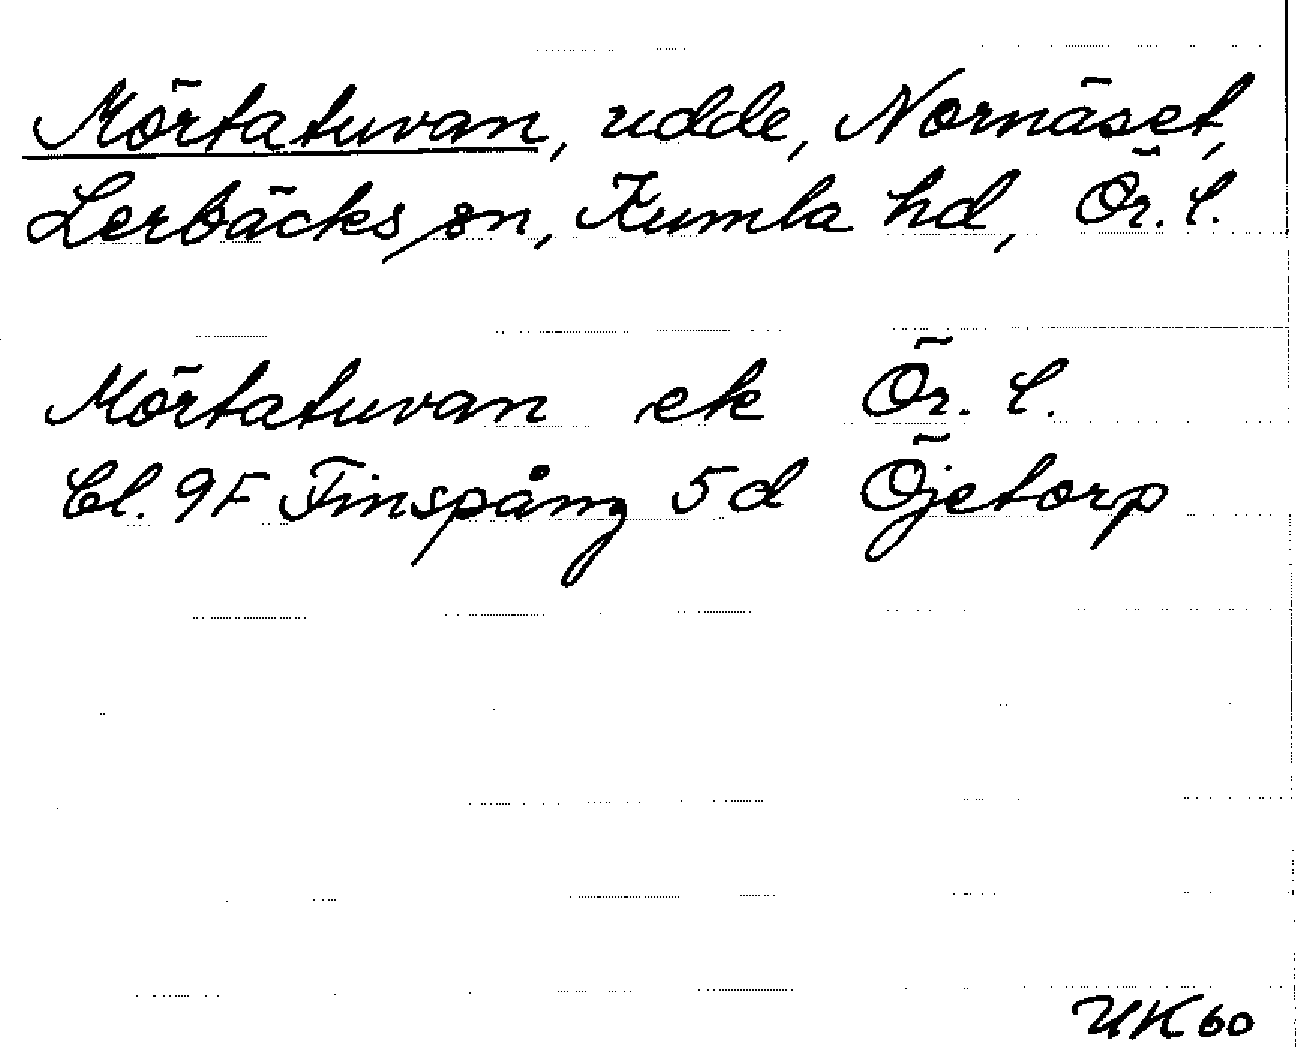 Mörtatuvan, udde, Nornäset,
Lerbäcks sn, Kumla hd, Ör. l.
Mörtatuvan ek Ör. l.
Bl. 9F Finspång 5d Öjetorp
UK 60